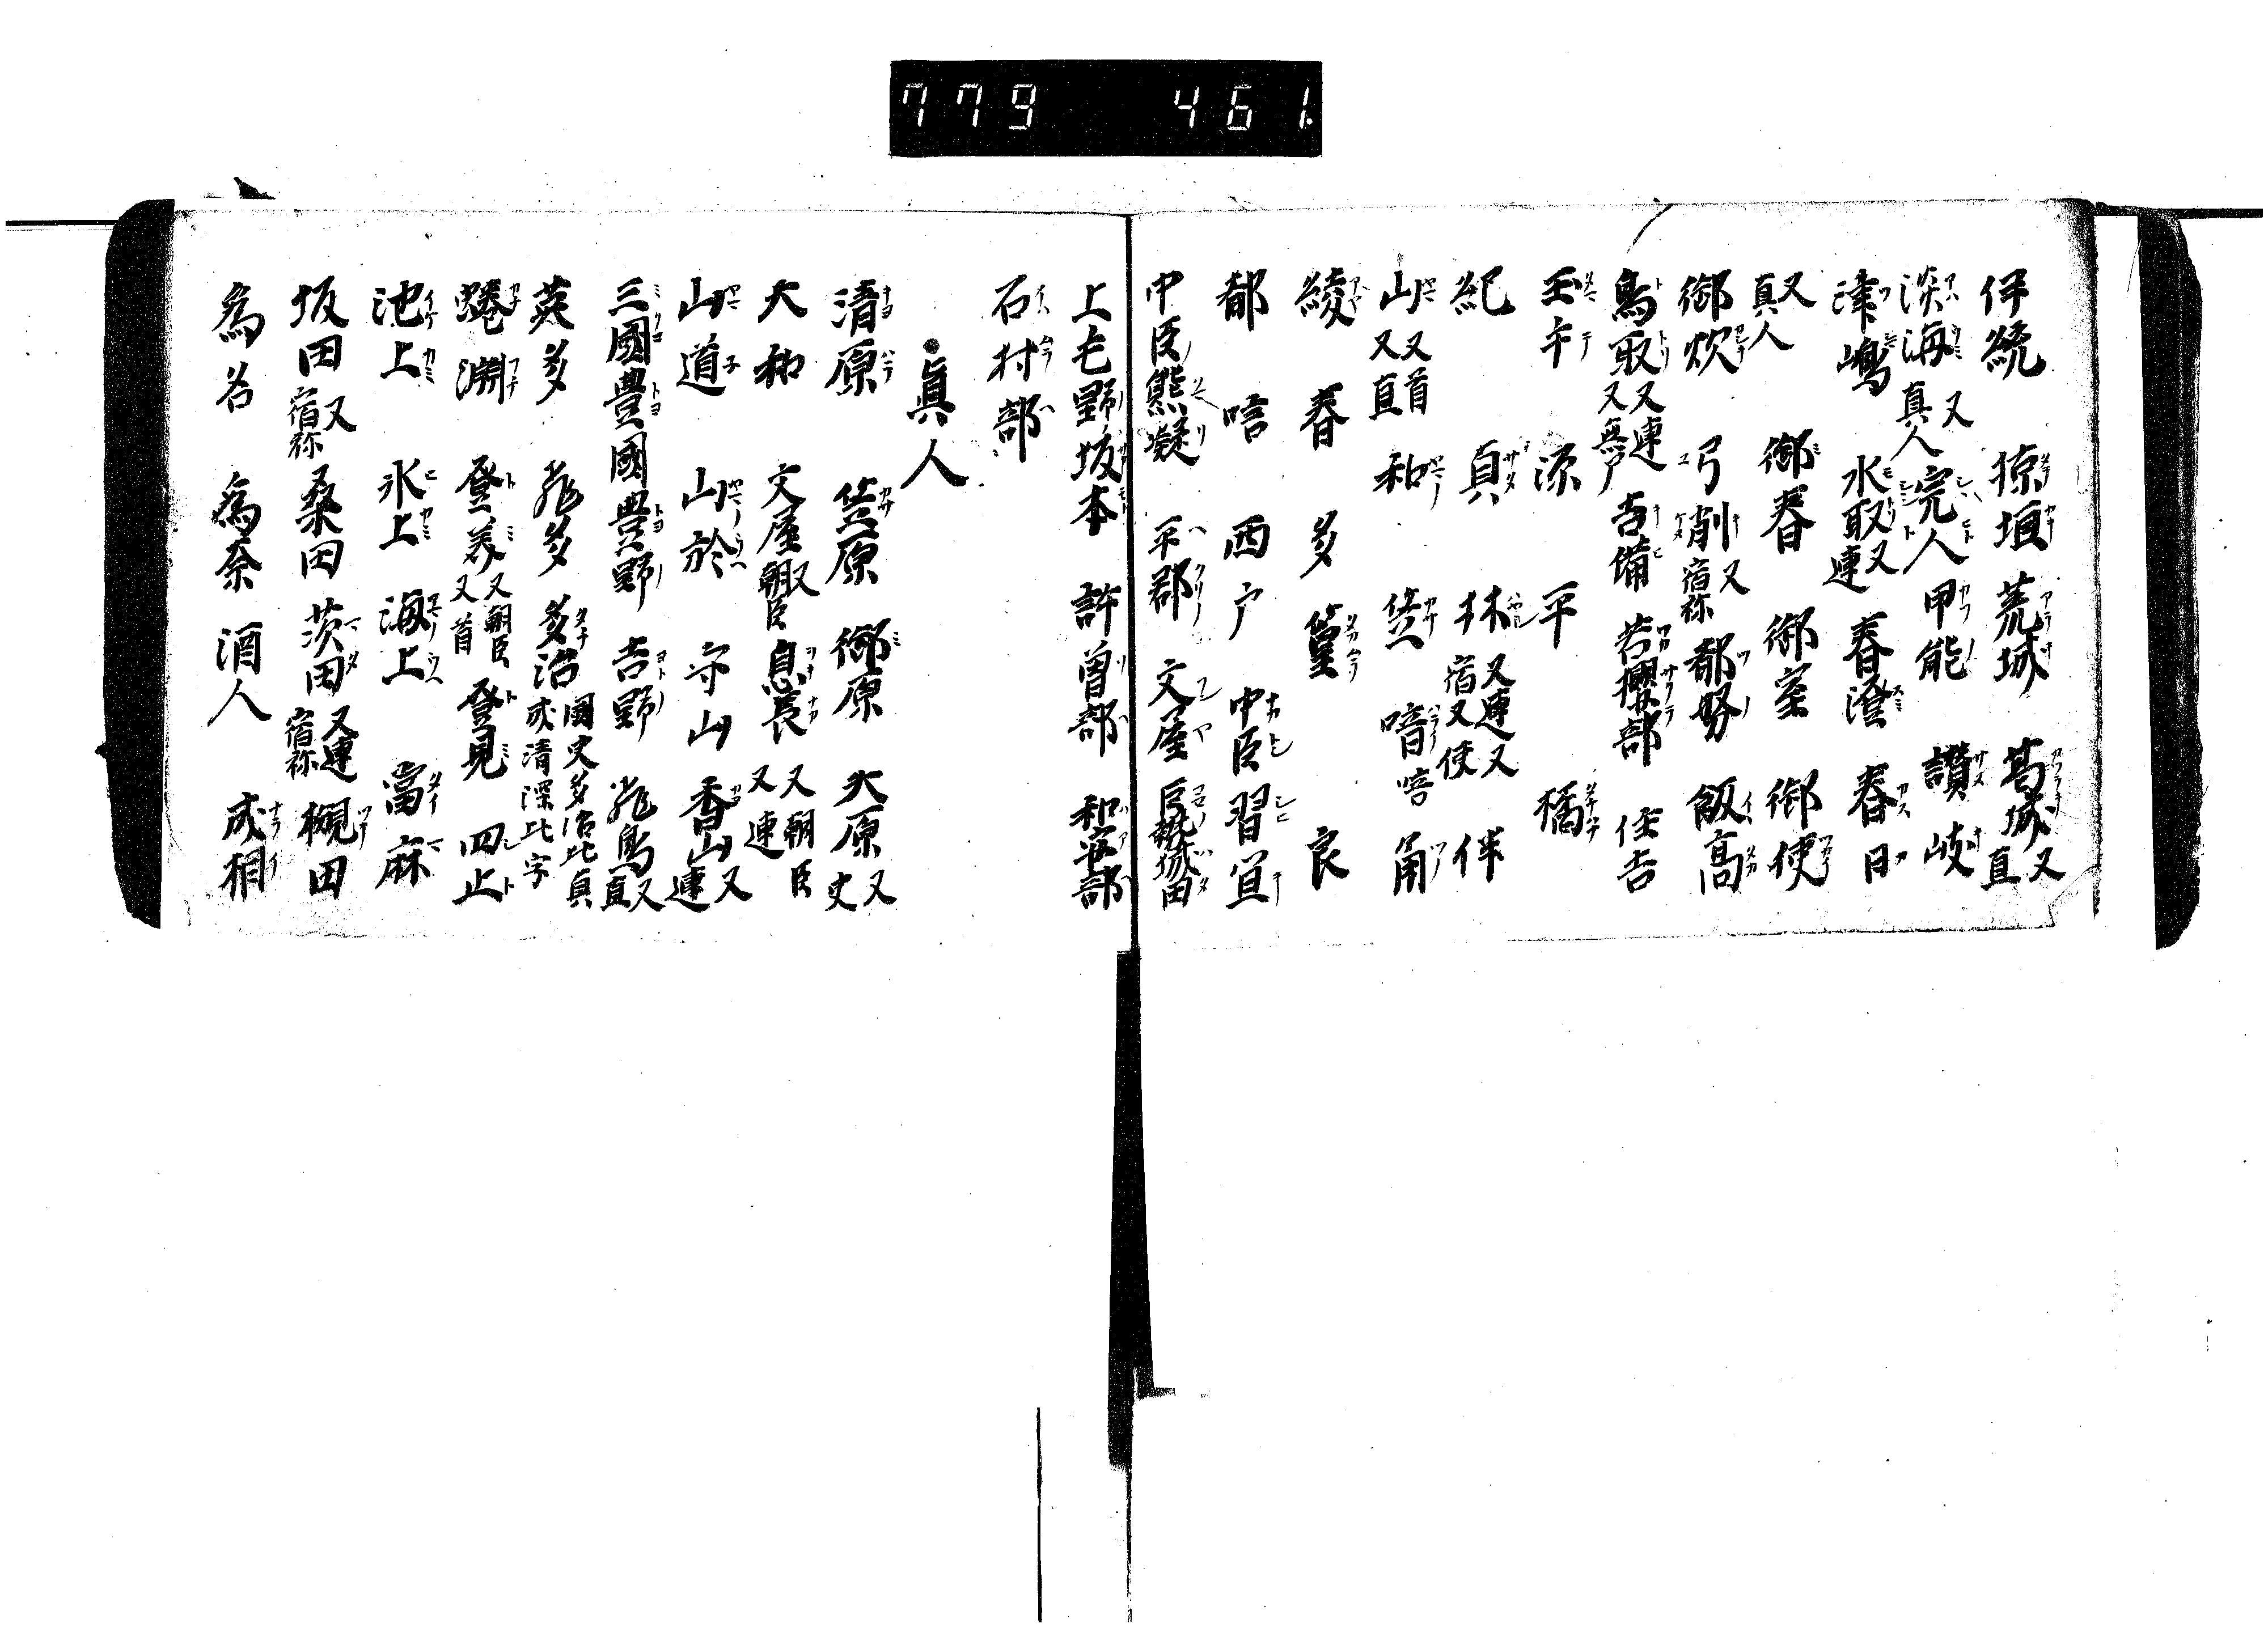 779 461
伊統 掠垣 荒城 葛城 又直
淡海 又真人 完人 甲能 讃岐
津嶋 水取 又連 春澄 春日
又真人 御春 御室 御使
御炊 弓削 又宿祢 都努 飯高
鳥取 又連 又無尸 吉備 若櫻部 住吉
玉手 源 平 橘
紀 貞 林 又連 又宿 又使 伴
山 又首 又直 和 笠 角
綾 春 多 篁 良
都 唔 西 户 中臣習宜
中臣熊凝 平郡 文屋 巨勢城田
上毛野坂本 許曽部 和安部
石村部
眞人
清原 笠原 御原 大原 又史
大和 文屋 又朝臣 息長 又朝臣 又連
山道 山於 守山 香山 又連
三國 豊國 豊野 吉野 飛鳥 又直
英多 飛多 多治 國史多治比真或清深比字
蜷淵 登美 又朝臣 又首 登見 四止
池上 氷上 海上 當麻
坂田 又宿祢 桑田 茨田 又連 宿祢 槻田
為名 為奈 酒人 成相